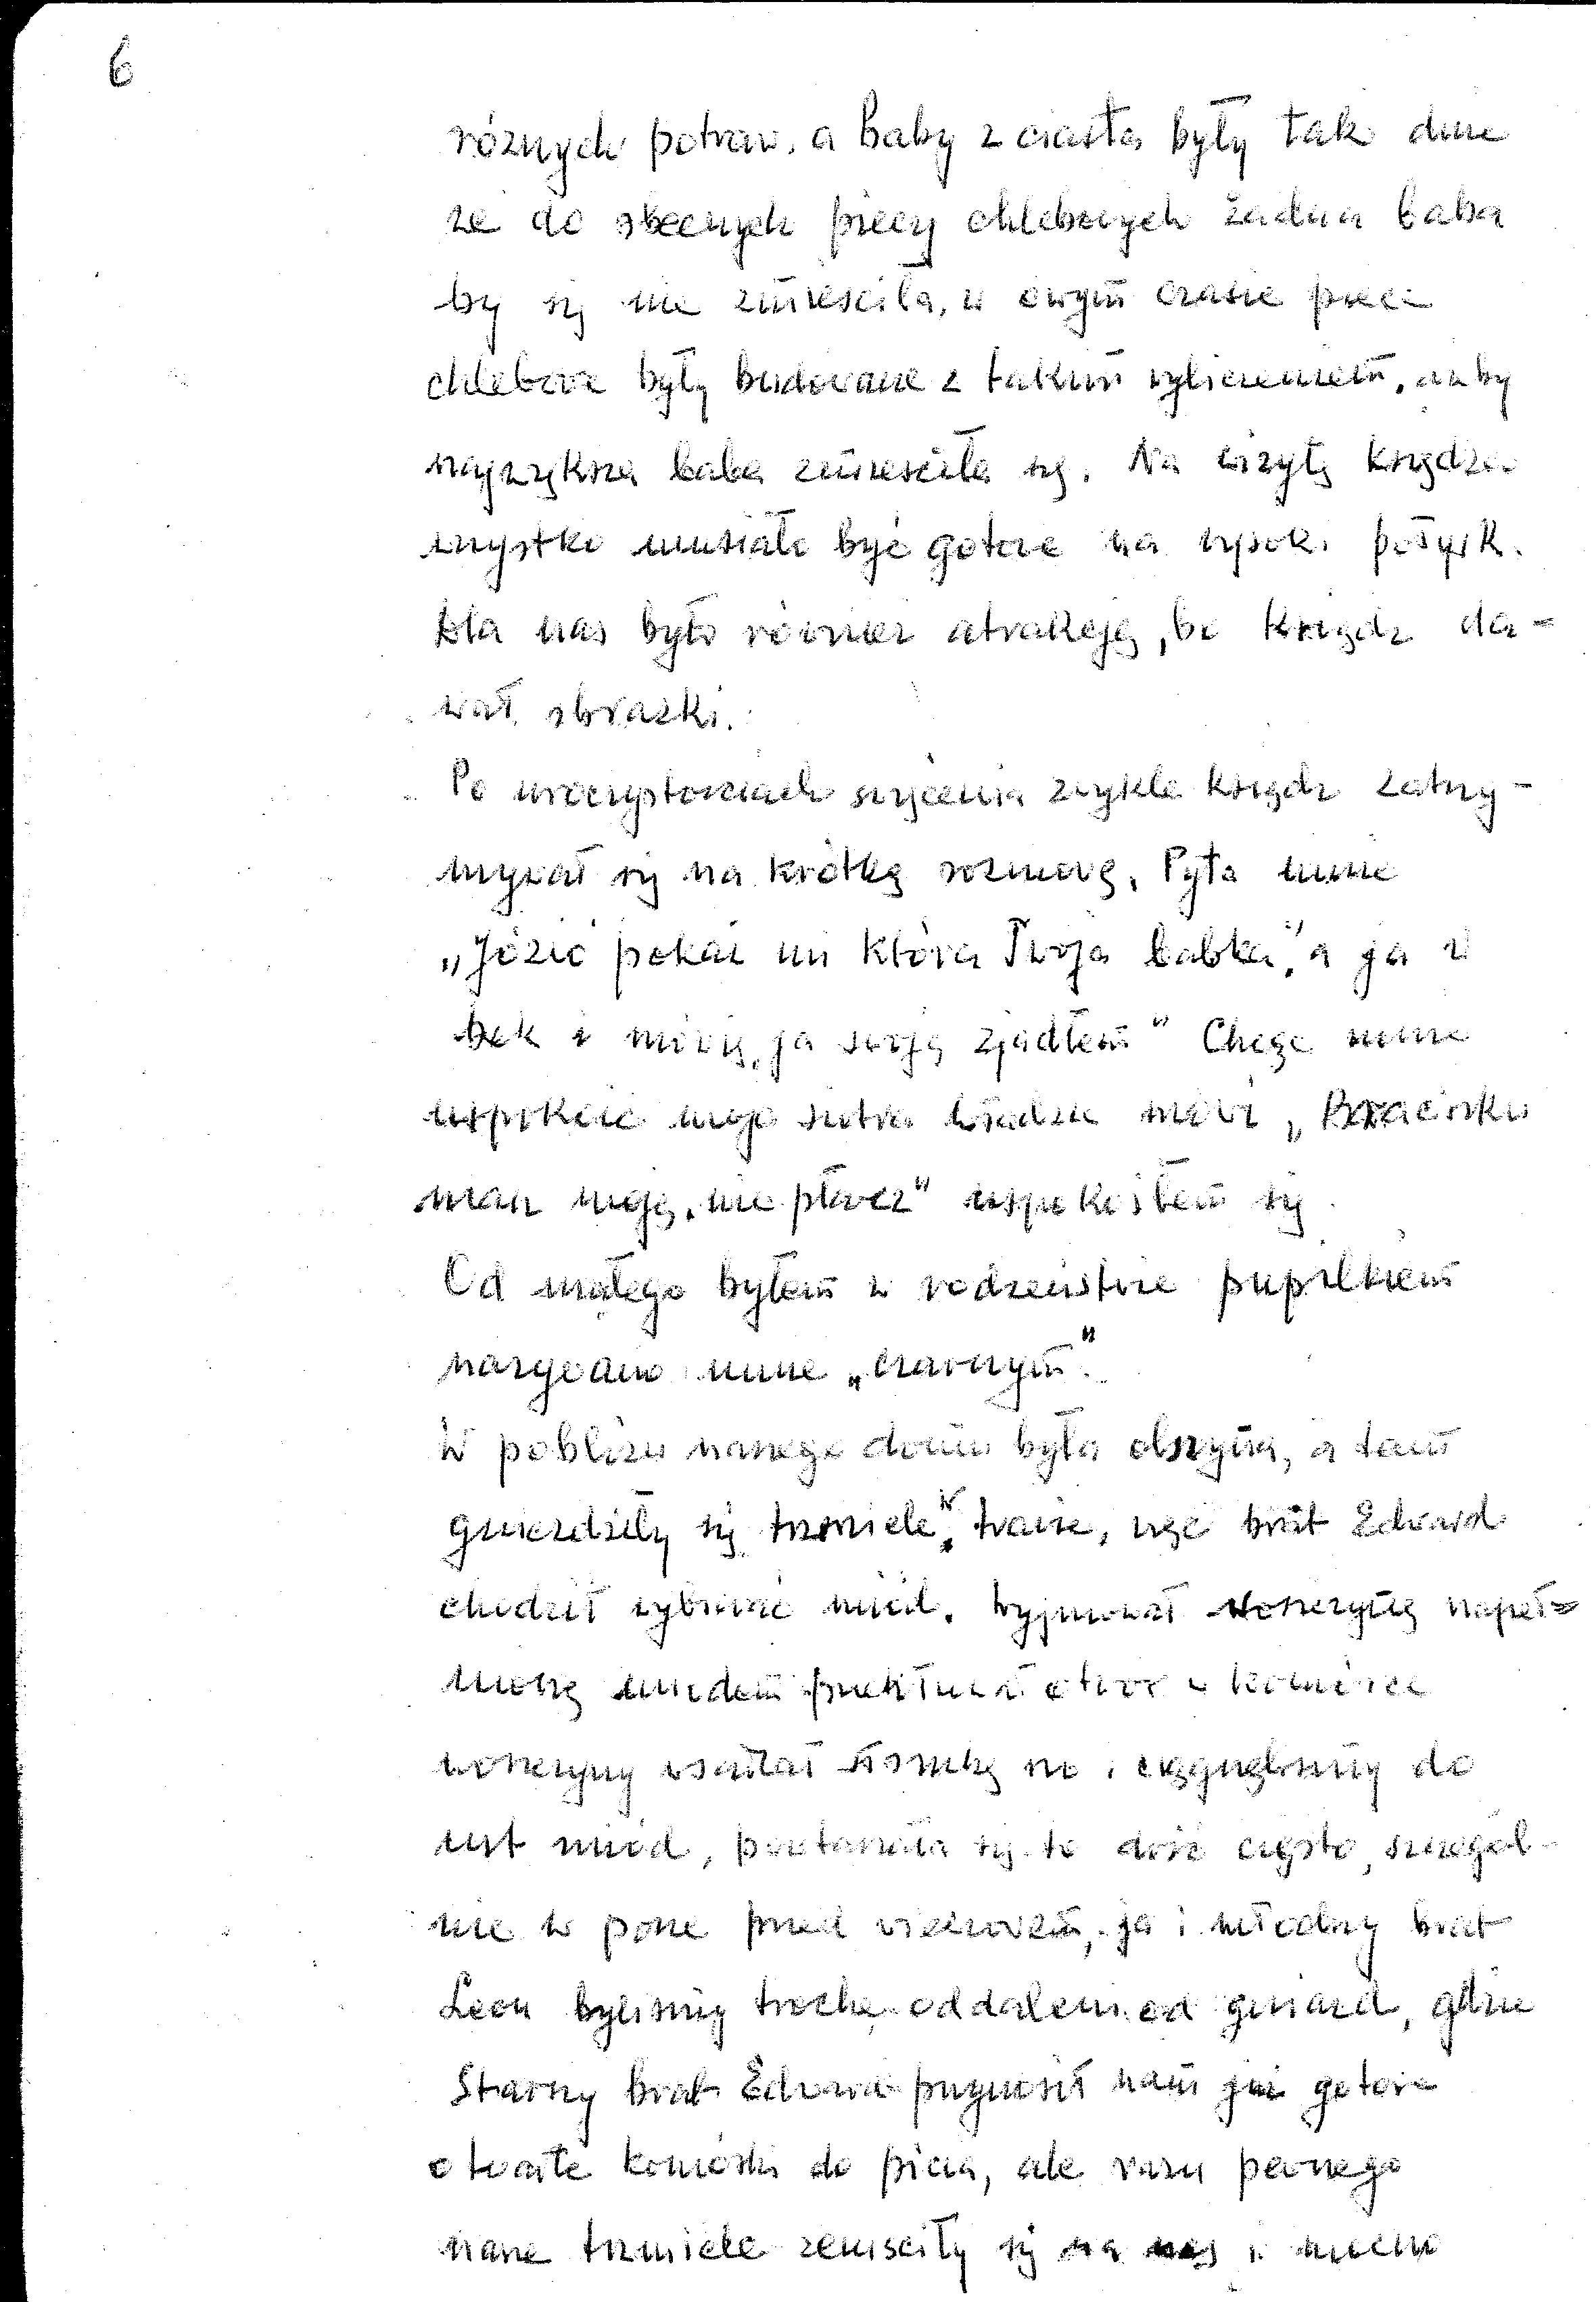 6
różnych potraw, a baby z ciasta były tak duże
że do obecnych piecy chlebowych żadna baba
by się nie zmieściła, w owym czasie piece
chlebowe były budowane z takim wyliczeniem, aby
największa baba zmieściła się. Na wizytę księdza
wszystko musiało być gotowe na wysoki połysk.
Dla nas było również atrakcją, bo ksiądz da-
wał obrazki.
Po uroczystościach święcenia zwykle ksiądz zatrzy-
mywał się na krótką rozmowę. Pyta mnie
„Józio pokaż mi która Twoja babka", a ja w
bek i mówię, ja swoją zjadłem" Chcąc mnie
uspokoić moja siostra Władzia mówi „Braciszku
masz moją, nie płacz" uspokoiłem się.
Od małego byłem w rodzeństwie pupilkiem
nazywano mnie „czarnym".
W pobliżu naszego domu była olszyna, a tam
gnieździły się trzmiele w trawie, więc brat Edward
chodził wybierać miód. Wyjmował woszczynę napeł-
nioną miodem przekłuwał otwór w komórce
woszczyny wsadzał słomkę no i ciągnęliśmy do
ust miód, powtarzała się to dość często, szczegól-
nie w porze przed wieczorem, ja i młodszy brat
Leon byliśmy trochę oddaleni od gniazd, gdzie
Starszy brat Edward przynosił nam już gotowe
otwarte komórki do picia, ale razu pewnego
nasze trzmiele zemściły się na nas i mocno